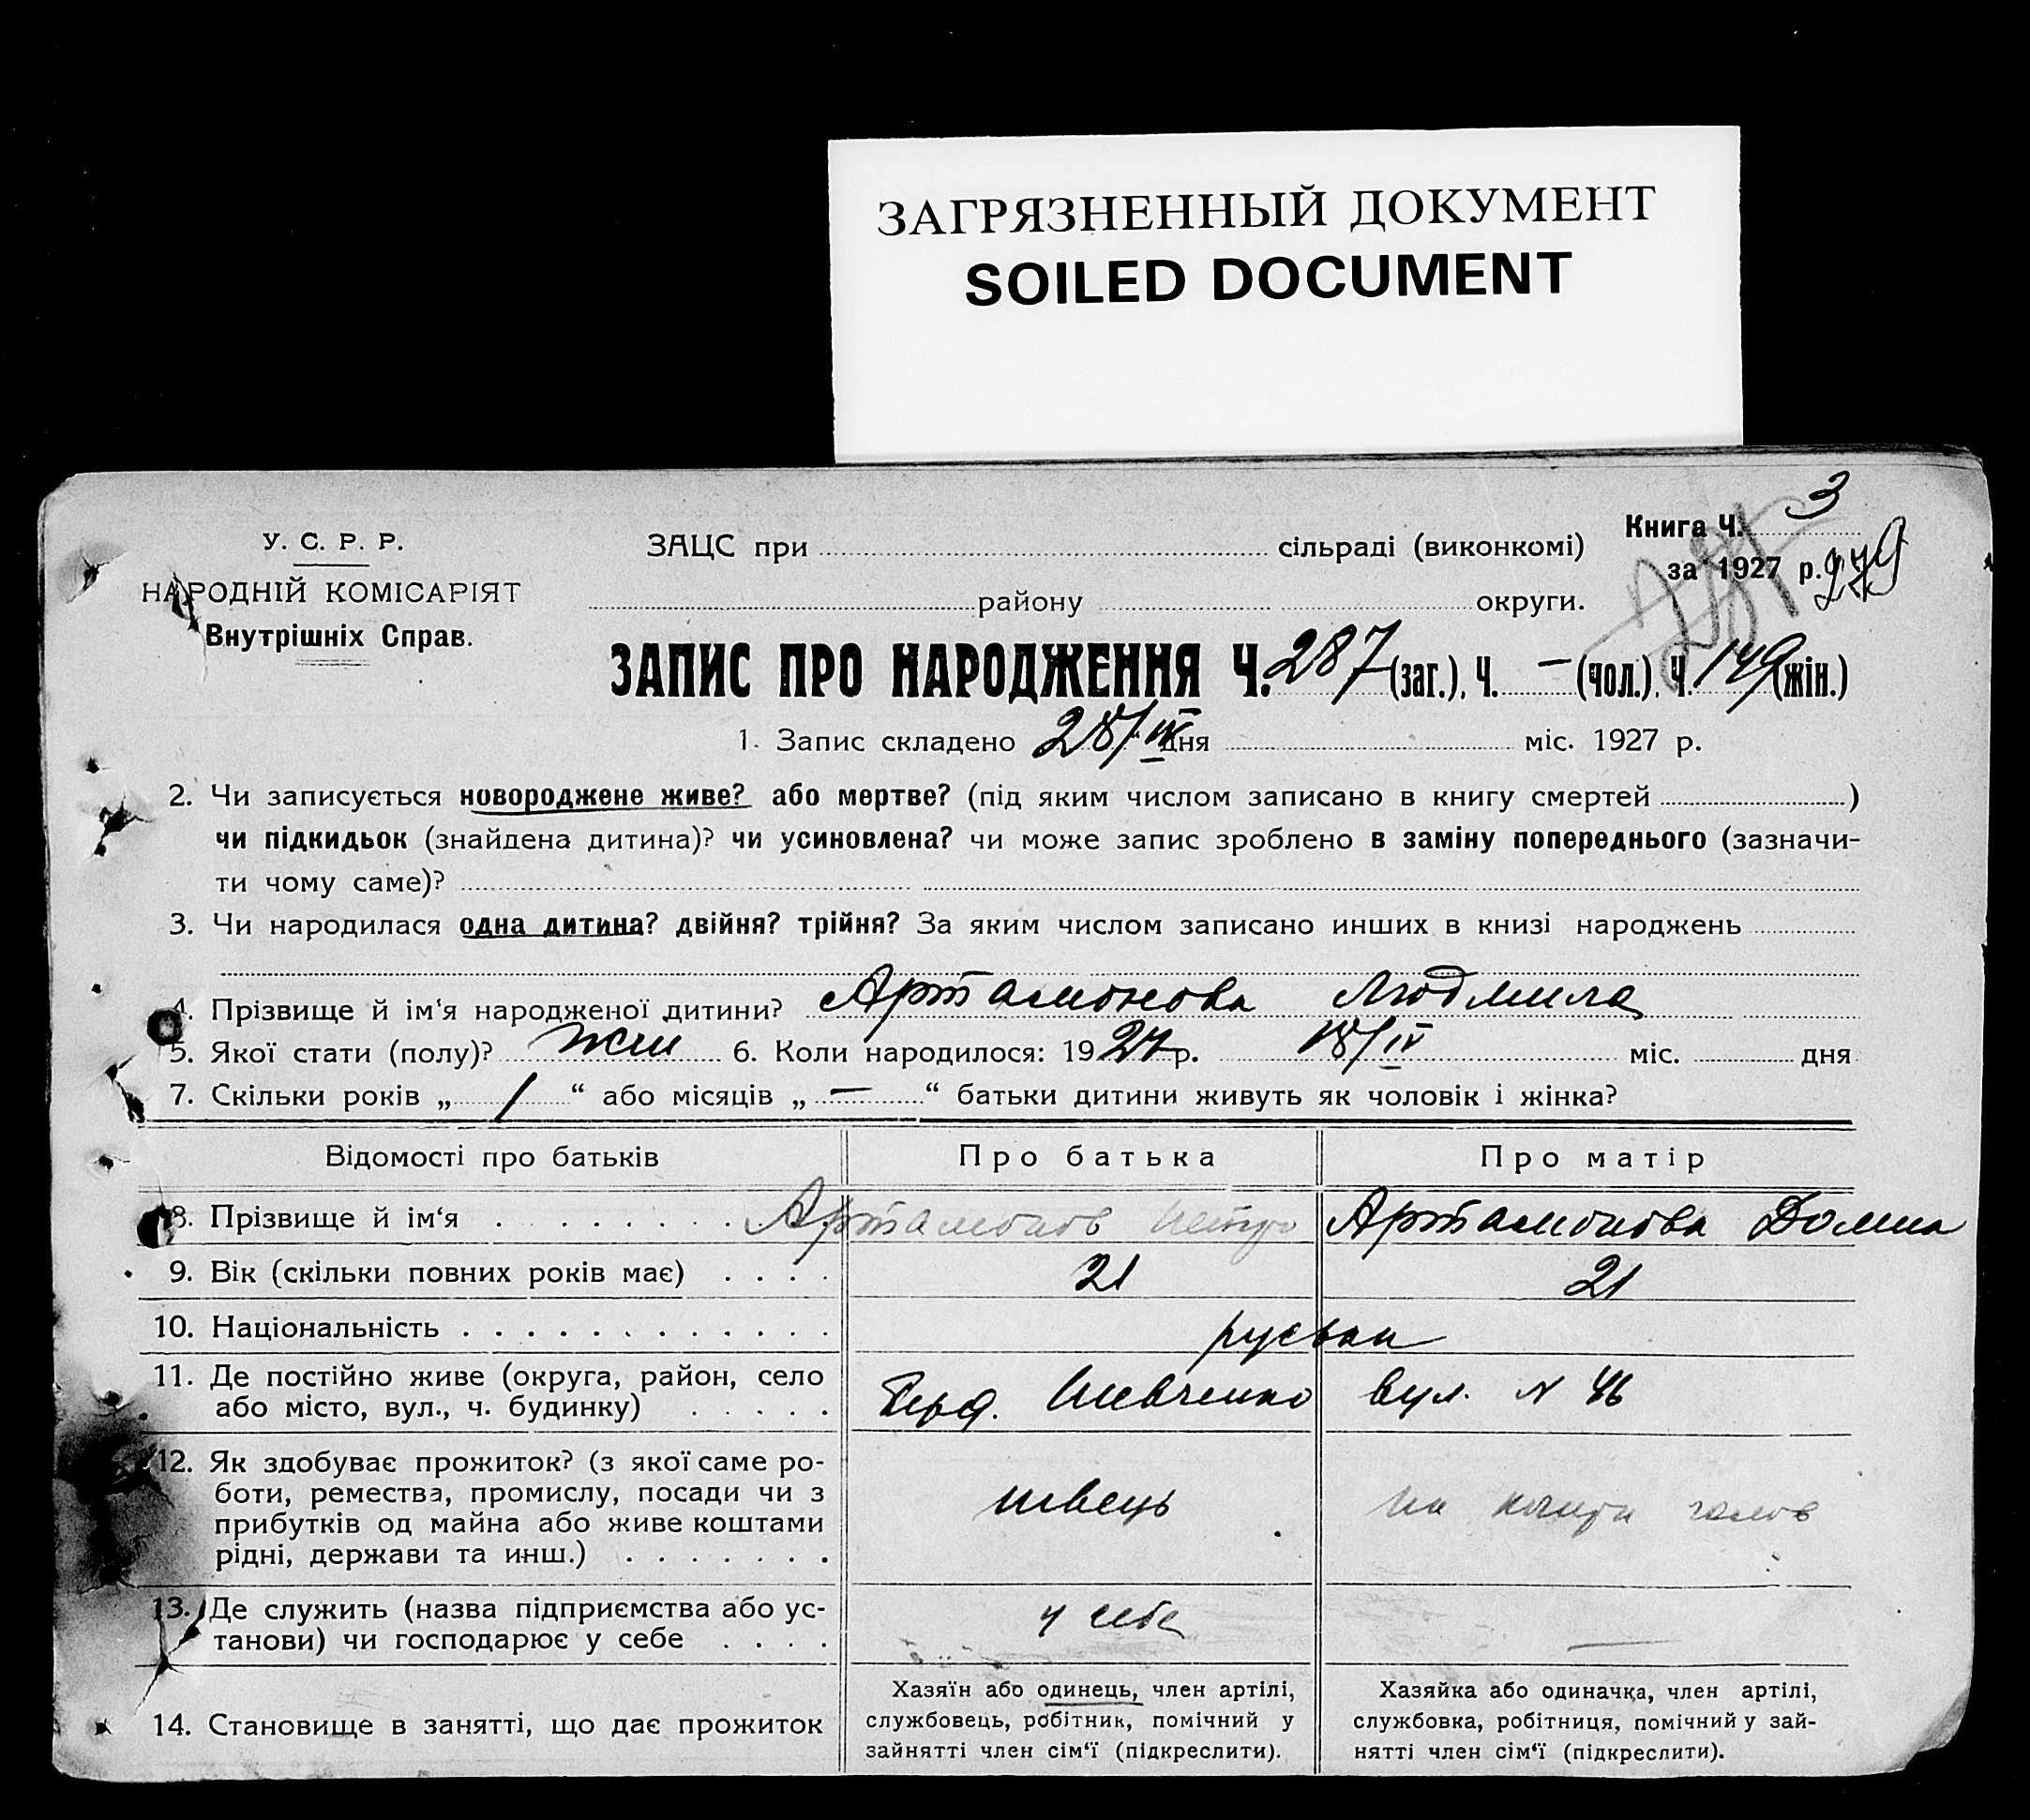 ЗАГРЯЗНЕННЫЙ ДОКУМЕНТ
SOILED DOCUMENT
Книга Ч. 3
У. С. Р. Р.
ЗАЦС при сільраді (виконкомі)
за 1927 р. 279
НАРОДНІЙ КОМІСАРІЯТ
району округи.
Внутрішніх Справ.
ЗАПИС ПРО НАРОДЖЕННЯ Ч. 287 (заг.), Ч. — (чол.), Ч. 149 (жін.)
1. Запис складено 28/IV дня міс. 1927 р.
2. Чи записується новороджене живе? або мертве? (під яким числом записано в книгу смертей )
чи підкидьок (знайдена дитина)? чи усиновлена? чи може запис зроблено в заміну попереднього (зазначи-
ти чому саме)?
3. Чи народилася одна дитина? двійня? трійня? За яким числом записано инших в книзі народжень
4. Прізвище й ім‘я народженої дитини? Артамонова Людмила
5. Якої стати (полу)? жін 6. Коли народилося: 1927 р. 18/IV міс. дня
7. Скільки років „ 1 “ або місяців „ — “ батьки дитини живуть як чоловік і жінка?
Відомості про батьків Про батька Про матір
8. Прізвище й ім‘я Артамонов Петро Артамонова Домна
9. Вік (скільки повних років має) 21 21
10. Національність
11. Де постійно живе (округа, район, село
або місто, вул., ч. будинку) Шевченко вул. N 46
12. Як здобуває прожиток? (з якої саме ро-
боти, ремества, промислу, посади чи з
прибутків од майна або живе коштами
рідні, держави та инш.)
швець
на кошти
13. Де служить (назва підприємства або ус-
танови) чи господарює у себе
у себе —
14. Становище в занятті, що дає прожиток
Хазяїн або одинець, член артілі,
службовець, робітник, помічний у
зайнятті член сім‘ї (підкреслити).
Хазяйка або одиначка, член артілі,
службовка, робітниця, помічний у зай-
нятті член сім‘ї (підкреслити).